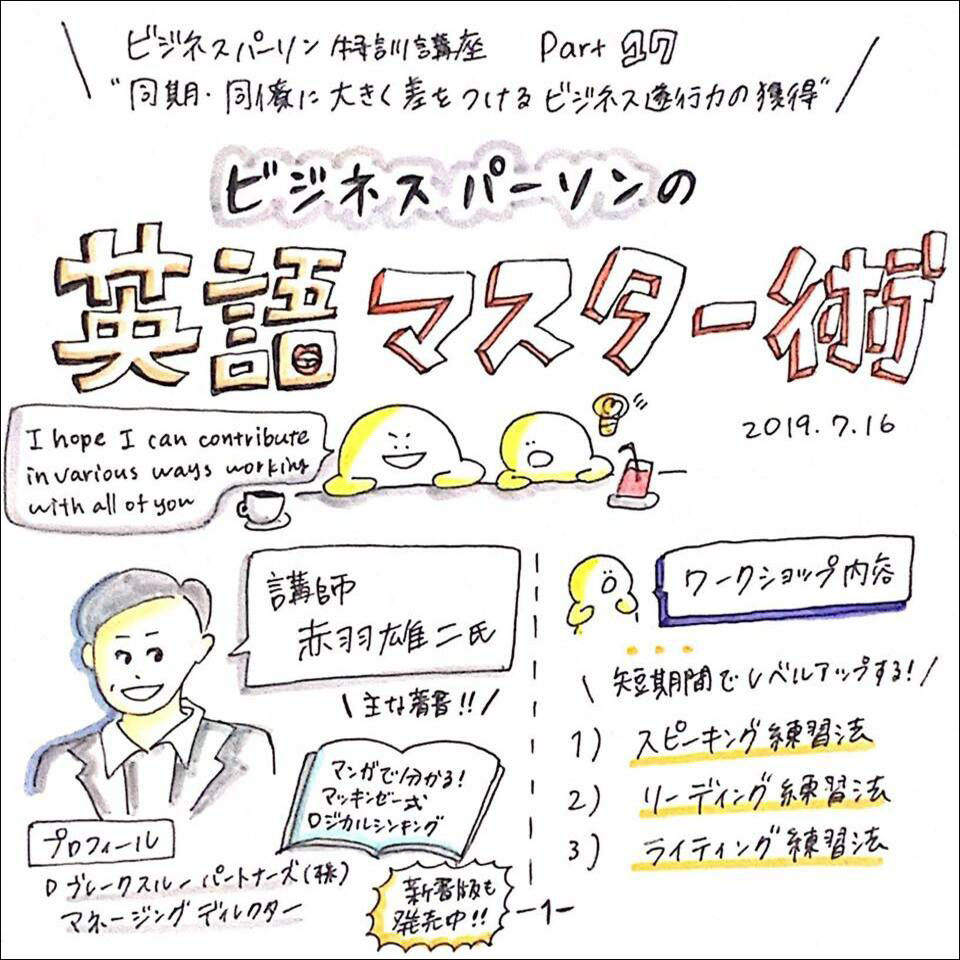 ビジネスパーソン 特訓講座 Part 17
"同期・同僚に大きく差をつけるビジネス遂行力の獲得"
ビジネスパーソンの
英語マスター術
2019.7.16
I hope I can contribute
in various ways working
with all of you
講師
赤羽雄二氏
主な著書!!
マンガで分かる!
マッキンゼー式
ロジカルシンキング
新書版も
発売中!!
プロフィール
ブレークスルーパートナーズ(株)
マネージングディレクター
ワークショップ内容
短期間でレベルアップする!
1) スピーキング練習法
2) リーディング練習法
3) ライティング練習法
-1-